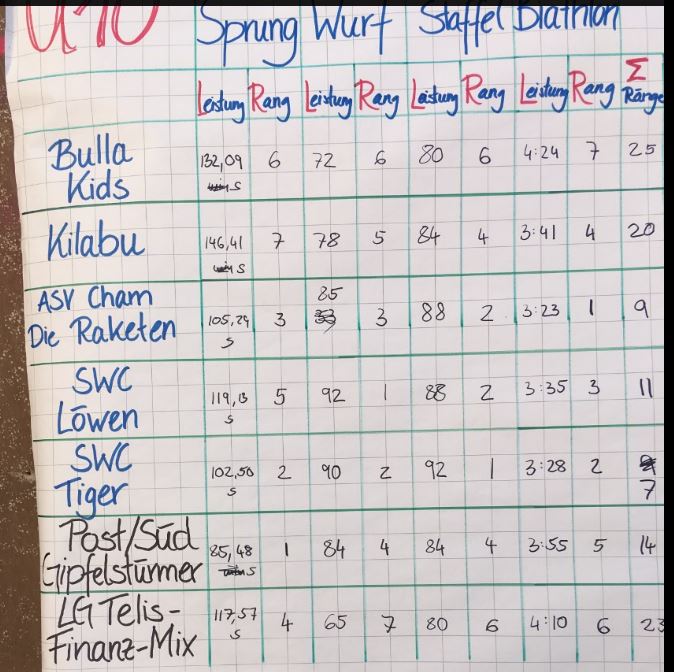 U10 Sprung Wurf Staffel Biathlon
Leistung Rang Leistung Rang Leistung Rang Leistung Rang Σ
Ränge
Bulla
Kids
132,09 6 72 6 80 6 4:24 7 25
s
Kilabu 146,41 7 78 5 84 4 3:41 4 20
s
ASV Cham
Die Raketen
85
105,29 3 3 88 2 3:23 1 9
s
SWC
Löwen
119,13 5 92 1 88 2 3:35 3 11
s
SWC
Tiger
102,50 2 90 2 92 1 3:28 2
s 7
Post/Süd
Gipfelstürmer
85,48 1 84 4 84 4 3:55 5 14
s
LG Telis-
Finanz-Mix
117,57 4 65 7 80 6 4:10 6 23
s